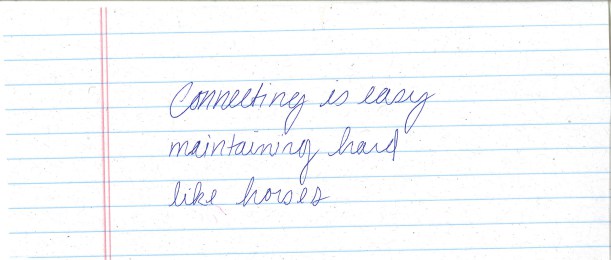 Connecting is easy
maintaining hard
like horses